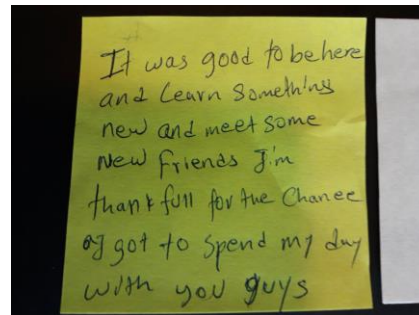 It was good to be here
and learn something
new and meet some
new friends I'm
thankfull for the Chance
I got to spend my day
with you guys